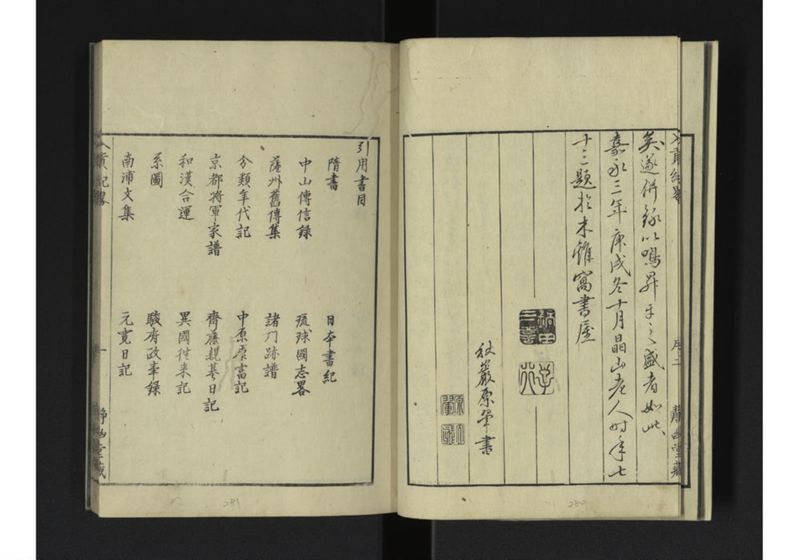 矣遂併錄以鳴昇平之盛者如此
嘉永三年庚戌冬十月晶山老人時年七
十三題於木雞窩書屋
秋巖原翬書
序二
靜幽堂藏
引用書目
隋書
日本書紀
中山傳信錄
琉球國志畧
薩州舊傳集
諸門跡譜
分類年代記
中原康富記
京都將軍家譜
齊藤親基日記
和漢合運
異國徃来記
系圖
駿府政事錄
南浦文集
元寬日記
入貢紀畧
一
靜幽堂藏
281
280